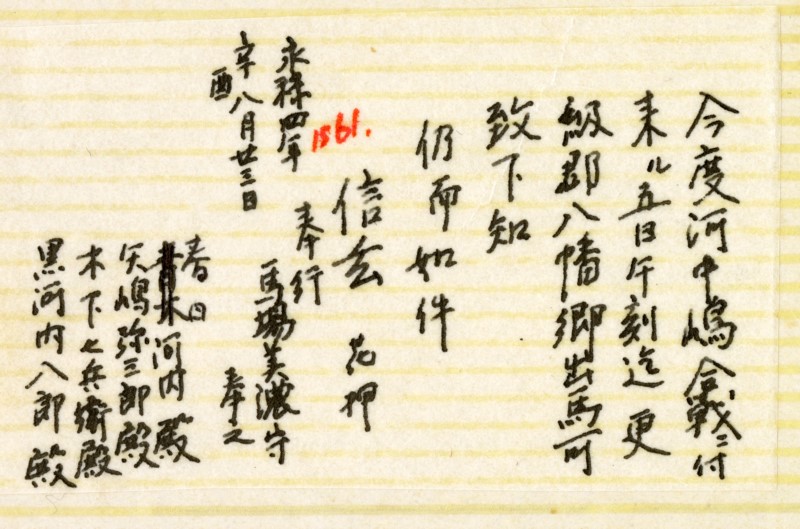 今度河中嶋合戦ニ付
来ル五日午刻迄更
級郡八幡郷出馬可
致下知
仍而如件
信玄 花押
奉行
馬場美濃守
奉之
永禄四年
1561.
辛酉八月廿三日
春日河内殿
矢嶋弥三郎殿
木下七兵衛殿
黒河内八郎殿